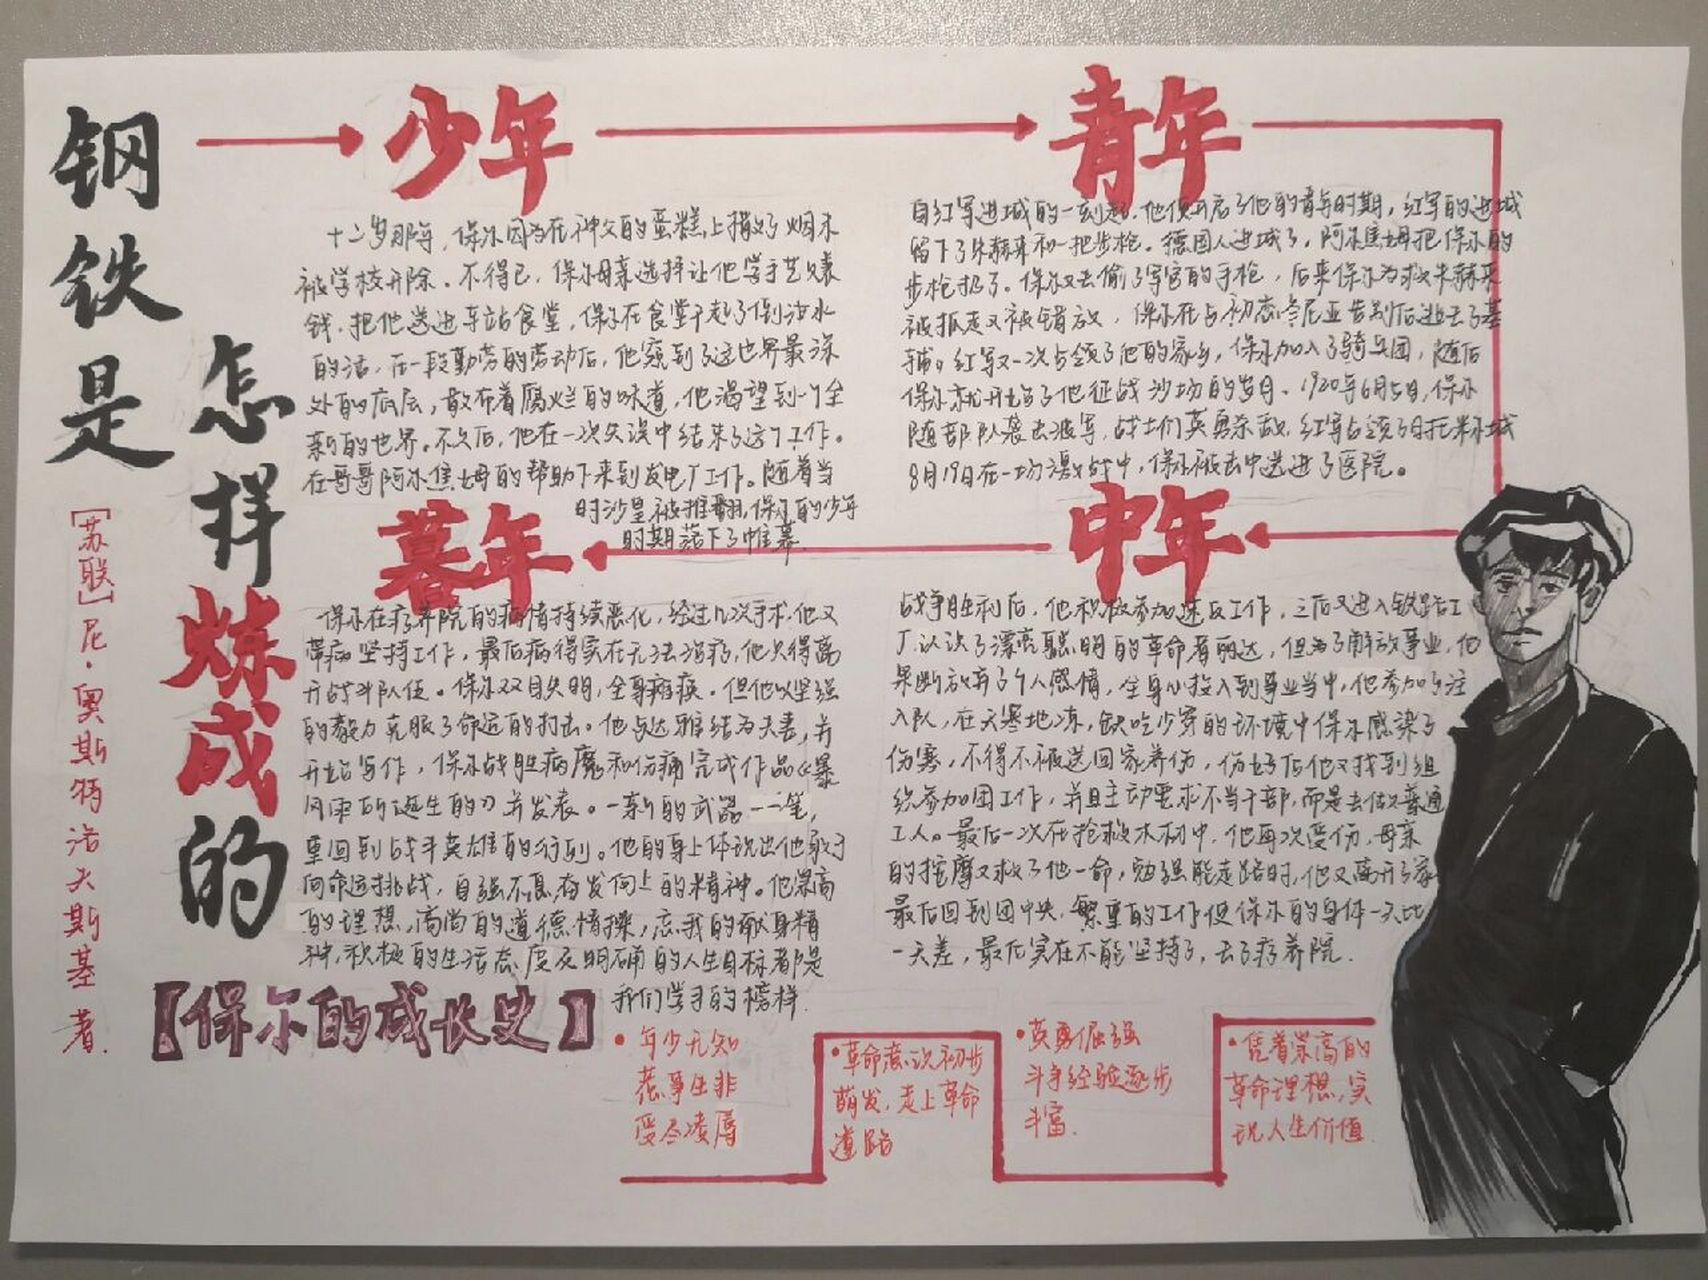 钢铁是
怎样炼成的
[苏联]尼·奥斯特洛夫斯基 著.
【保尔的成长史】
少年
十二岁那年,保尔因为在神父的蛋糕上撒了烟末
被学校开除.不得已,保尔母亲选择让他学手艺赚
钱.把他送进车站食堂,保尔在食堂干起了倒汝水
的活,在一段勤劳的劳动后,他窥到了这世界最深
处的底层,散布着腐烂的味道,他渴望到一个全
新的世界。不久后,他在一次失误中结束了这个工作。
在哥哥阿尔焦姆的帮助下来到发电厂工作。随着当
时沙皇被推翻,保尔的少年
时期落下了帷幕.
青年
自红军进城的一刻起,他便开启了他的青年时期,红军的进城
留下了朱赫来和一把步枪。德国人进城了,阿尔焦姆把保尔的
步枪扔了。保尔又去偷了军官的手枪,后来保尔为救朱赫来
被抓走又被错放,保尔在与初恋冬尼亚告别后逃去了基
辅。红军又一次占领了他的家乡,保尔加入了骑兵团,随后
保尔就开始了他征战沙场的岁月、1920年6月5日,保尔
随部队袭击波军,战士们英勇杀敌,红军占领了日托米尔城
8月19日在一场激战中,保尔被击中送进了医院。
中年
战争胜利后,他积极参加速反工作,之后又进入铁路工
厂认识了漂亮聪明的革命者丽达,但为了解放事业,他
果断放弃了个人感情,全身心投入到事业当中,他参加了注
入队,在天寒地冻,缺吃少穿的环境中保尔感染了
伤寒,不得不被送回家养伤,伤好后他又找到组
织参加团工作,并且主动要求不当干部,而是去做普通
工人。最后一次在抢救木材中,他再次受伤,母亲
的按摩又救了他一命,勉强能走路时,他又离开了家
最后回到团中央,繁重的工作使保尔的身体一天比
一天差,最后实在不能坚持了,去了疗养院.
暮年
保尔在疗养院的病情持续恶化,经过几次手术,他又
带病坚持工作,最后病得实在无法治疗,他只得离
开战斗队伍。保尔双目失明,全身瘫痪.但他以坚强
的毅力克服了命运的打击。他与达雅结为夫妻,并
开始写作,保尔战胜病魔和伤痛完成作品《暴
风雨所诞生的》并发表。一新的武器——笔,
重回到战斗英雄的行列。他的身上体现出他敢于
向命运挑战,自强不息奋发向上的精神。他崇高
的理想,高尚的道德情操,忘我的献身精
神,积极的生活态度及明确的人生目标都是
我们学习的榜样.
•年少无知
惹事生非
受尽凌辱
•革命意识初步
萌发,走上革命
道路
•英勇倔强
斗争经验逐步
丰富.
•凭着崇高的
革命理想,实
现人生价值.